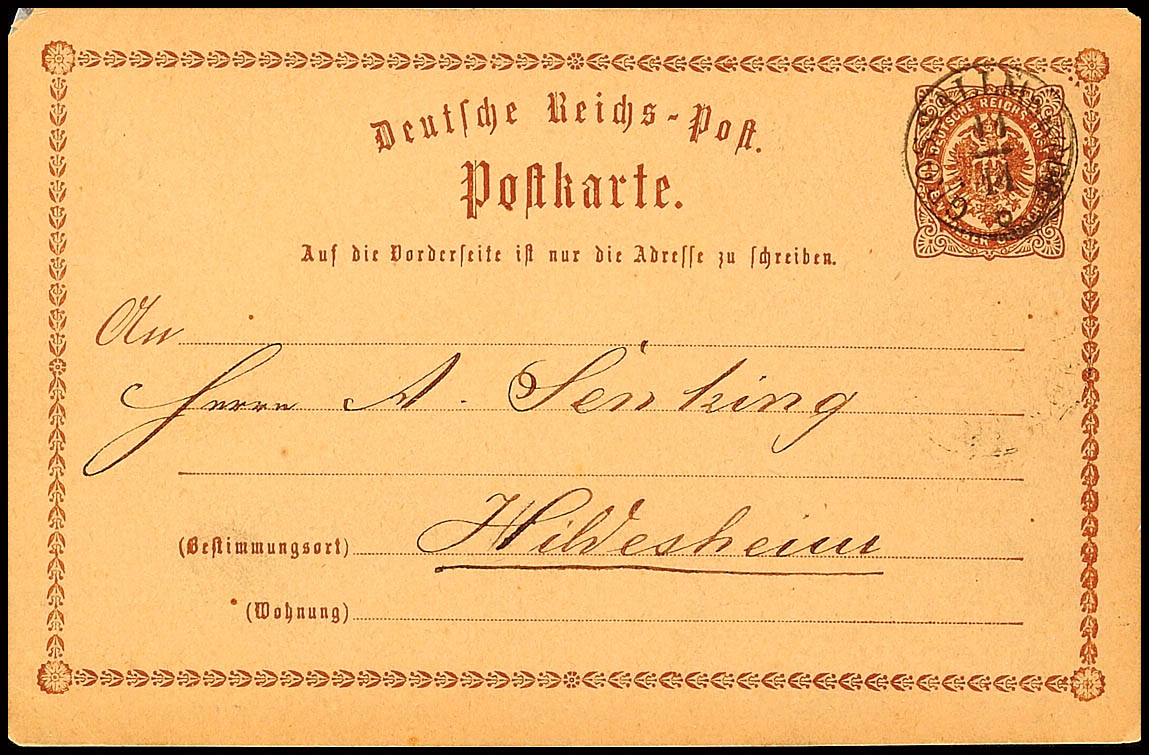 Deutsche Reichs-Post.
Postkarte.
Auf die Vorderseite ist nur die Adresse zu schreiben.
DEUTSCHE REICHS-POST
11
11
An
Herrn A. Senking
(Bestimmungsort) Hildesheim
(Wohnung)